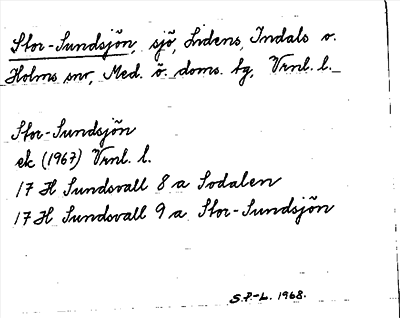 Stor-Sundsjön, sjö, Lidens, Indals o.
Holms snr, Med. ö. doms. tg, Vrnl. l.
Stor-Sundsjön
ek (1967) Vrnl. l.
17 H Sundsvall 8 a Sodalen
17 H Sundsvall 9 a Stor-Sundsjön
S.P-L. 1968.